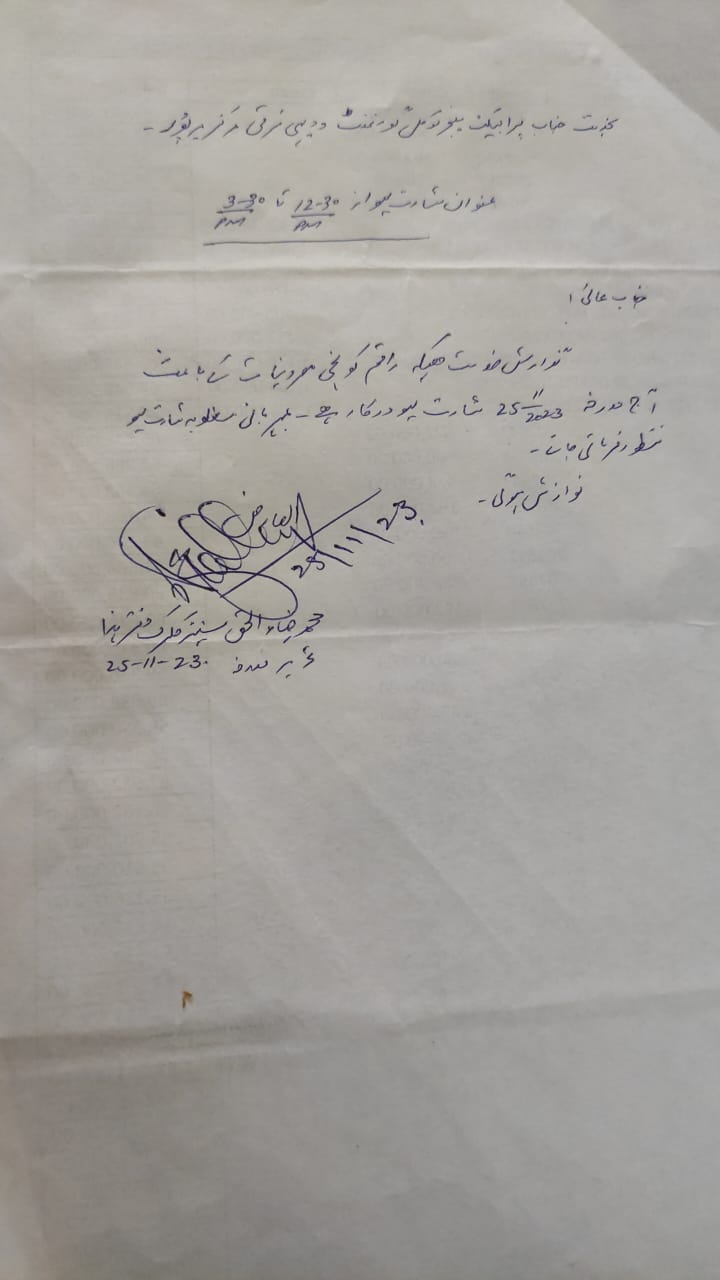 بخدمت جناب پراجیکٹ منیجر لوکل گورنمنٹ و دیہی ترقی مرکز میرپور ۔
عنوان شارٹ لیو از 12-30 PM تا 3-30 PM
جناب عالی !
گزارش خدمت ہیکہ راقم کو نجی مصروفیات کے باعث
آج مورخہ 25-11-2023 شارٹ لیو درکار ہے ۔ بمہربانی مطلوبہ شارٹ لیو
منظور فرمائی جائے ۔
نوازش ہوگی ۔
العارض
25/11/23.
محمد ضیاء الحق سینئر کلرک دفتر ہذا
تحریر مورخہ 25-11-23.